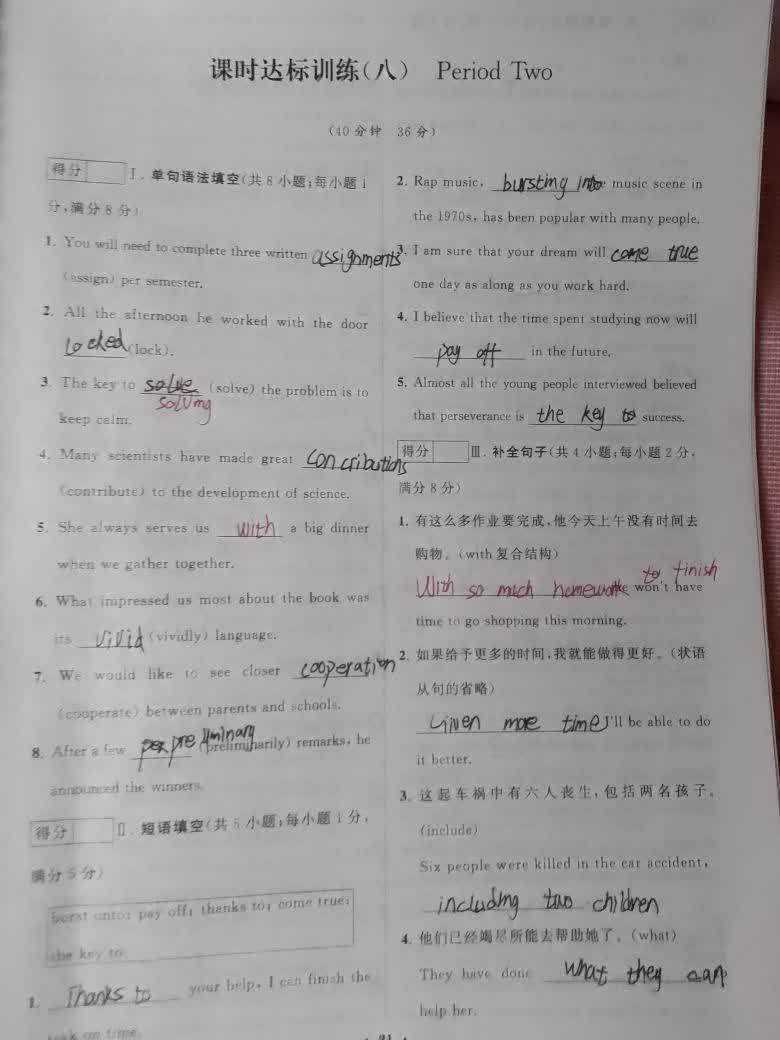 课时达标训练(八) Period Two
(40分钟 36分)
得分
Ⅰ.单句语法填空(共8小题;每小题1
分,满分8分)
1. You will need to complete three written assignments
(assign) per semester.
2. All the afternoon he worked with the door
locked (lock).
3. The key to solve (solve) the problem is to
solving
keep calm.
4. Many scientists have made great contributions
(contribute) to the development of science.
5. She always serves us with a big dinner
when we gather together.
6. What impressed us most about the book was
its vivid (vividly) language.
7. We would like to see closer cooperation
(cooperate) between parents and schools.
8. After a few preliminary (preliminarily) remarks, he
announced the winners.
得分
Ⅱ.短语填空(共5小题;每小题1分,
满分5分)
burst onto; pay off; thanks to; come true;
the key to
1. Thanks to your help, I can finish the
task on time.
2. Rap music, bursting into music scene in
the 1970s, has been popular with many people.
3. I am sure that your dream will come true
one day as along as you work hard.
4. I believe that the time spent studying now will
pay off in the future.
5. Almost all the young people interviewed believed
that perseverance is the key to success.
得分
Ⅲ.补全句子(共4小题;每小题2分,
满分8分)
1. 有这么多作业要完成,他今天上午没有时间去
购物。(with复合结构)
With so much homework to finish he won't have
time to go shopping this morning.
2. 如果给予更多的时间,我就能做得更好。(状语
从句的省略)
Given more time I'll be able to do
it better.
3. 这起车祸中有六人丧生,包括两名孩子。
(include)
Six people were killed in the car accident,
including two children
4. 他们已经竭尽所能去帮助她了。(what)
They have done what they can
help her.